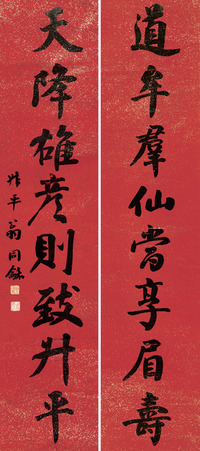 道牟羣仙當享眉壽
天降雄彥則致升平
叔平翁同龢